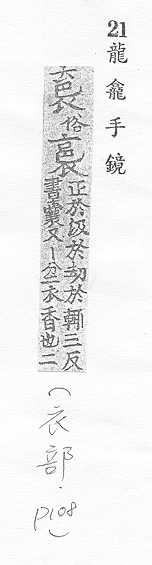 21 龍龕手鏡
俗裛正於汲於劫於輒三反
書囊又衣香也二
(衣部.P108)